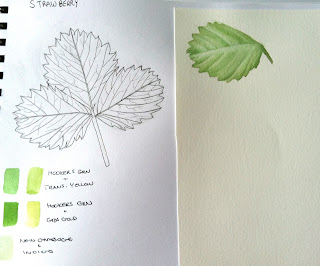 STRAWBERRY
HOOKERS GRN
+
TRANS. YELLOW
HOOKERS GRN
+
GOLD
NEW GAMBOGE
+
INDIGO